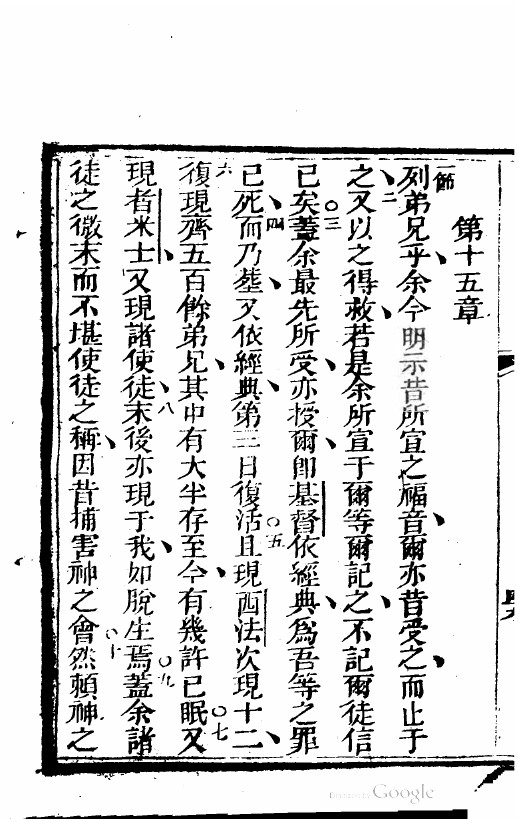 第十五章
一節列弟兄乎余今明示昔所宣之福音爾亦昔受之而止于
二之又以之得救若是余所宣于爾等爾記之不記爾徒信
已矣○三蓋余最先所受亦授爾卽基督依經典爲吾等之罪
已死四而乃塟又依經典第三日復活○五且現西法次現十二
六復現齊五百餘弟兄其中有大半存至今有幾許已眠○七又
現者米士又現諸使徒八末後亦現于我如脫生焉○九蓋余諸
徒之微末而不堪使徒之稱因昔捕害神之會○十然賴神之
Digitized by Google